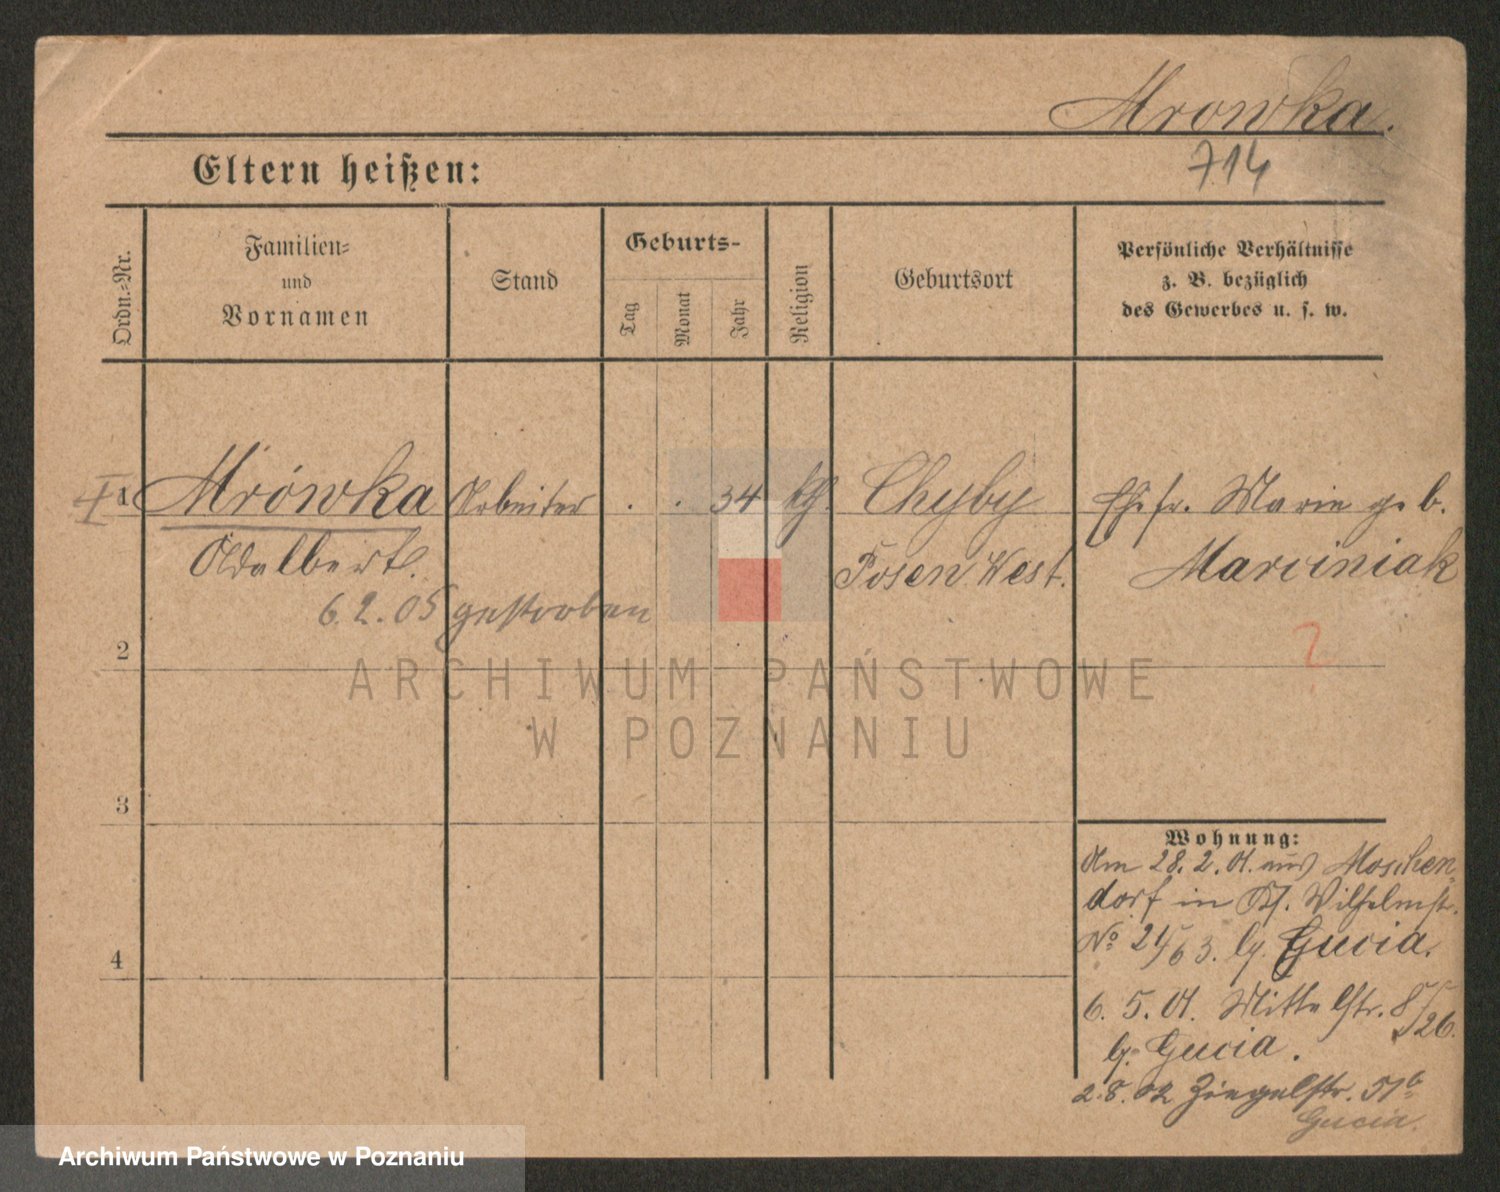 Mrowka.
714
Eltern heißen:
Ordn.-Nr.
Familien-
und
Vornamen
Stand
Geburts-
Tag
Monat
Jahr
Religion
Geburtsort
Persönliche Verhältnisse
z. B. bezüglich
des Gewerbes u. s. w.
1 Mrówka Arbeiter . . 34 kth. Chyby Ehefr. Marie geb.
Adalbert. Posen West. Marciniak
6.2.05 gestorben
2
?
3
Wohnung:
Am 28.2.01. aus Moschen-
dorf in Wilhelmstr.
No 24/63. b. Gucia.
4
6. 5. 01. Mittelstr. 8/26.
b. Gucia.
2.8.02 Ziegelstr. 51b
Gucia.
ARCHIWUM PAŃSTWOWE
W POZNANIU
Archiwum Państwowe w Poznaniu